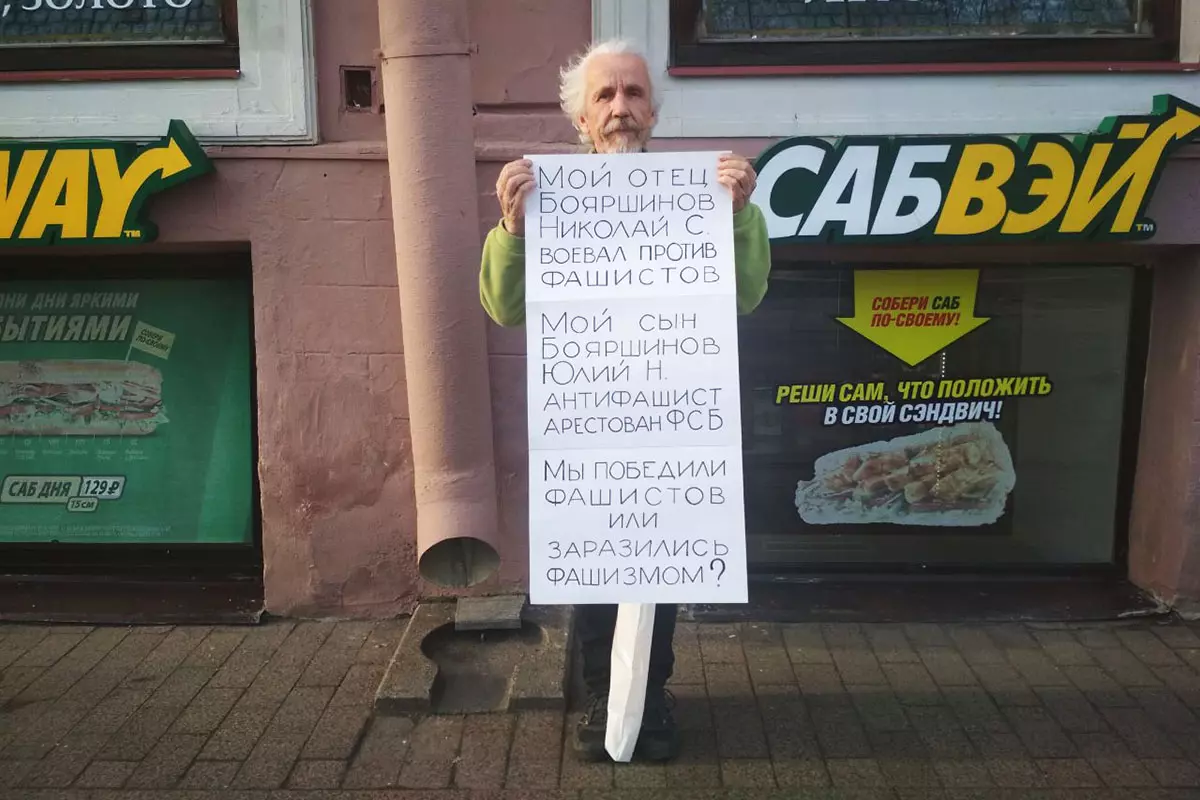 , ЗОЛОТО
WAY
TM
НИ ДНИ ЯРКИМИ
БЫТИЯМИ
СОБЕРИ САБ
ПО-СВОЕМУ!
САБ ДНЯ 129₽
15см
Мой отец
Бояршинов
Николай С.
воевал против
фашистов
Мой сын
Бояршинов
Юлий Н.
антифашист
арестован ФСБ
Мы победили
фашистов
или
заразились
фашизмом?
САБВЭЙ
TM
СОБЕРИ САБ
ПО-СВОЕМУ!
РЕШИ САМ, ЧТО ПОЛОЖИТЬ
В СВОЙ СЭНДВИЧ!